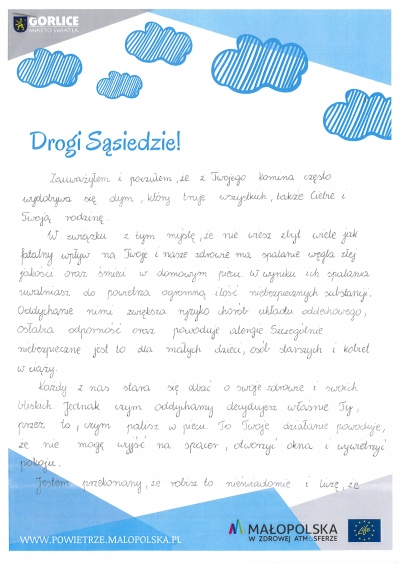 GORLICE
MIASTO ŚWIATŁA
Drogi Sąsiedzie!
Zauważyłem i poczułem, że z Twojego komina często
wydobywa się dym, który truje wszystkich, także Ciebie i
Twoją rodzinę.
W związku z tym myślę, że nie wiesz zbyt wiele jak
fatalny wpływ na Twoje i nasze zdrowie ma spalanie węgla złej
jakości oraz śmieci w domowym piecu. W wyniku ich spalania
uwalniasz do powietrza ogromną ilość niebezpiecznych substancji.
Oddychanie nimi zwiększa ryzyko chorób układu oddechowego,
osłabia odporność oraz powoduje alergie. Szczególnie
niebezpieczne jest to dla małych dzieci, osób starszych i kobiet
w ciąży.
Każdy z nas stara się dbać o swoje zdrowie i swoich
bliskich. Jednak czym oddychamy decydujesz właśnie Ty,
przez to, czym palisz w piecu. To Twoje działanie powoduje,
że nie mogę wyjść na spacer, otworzyć okna i wywietrzyć
pokoju.
Jestem przekonany, że robisz to nieświadomie i liczę, że
WWW.POWIETRZE.MALOPOLSKA.PL
MAŁOPOLSKA
W ZDROWEJ ATMOSFERZE
Life